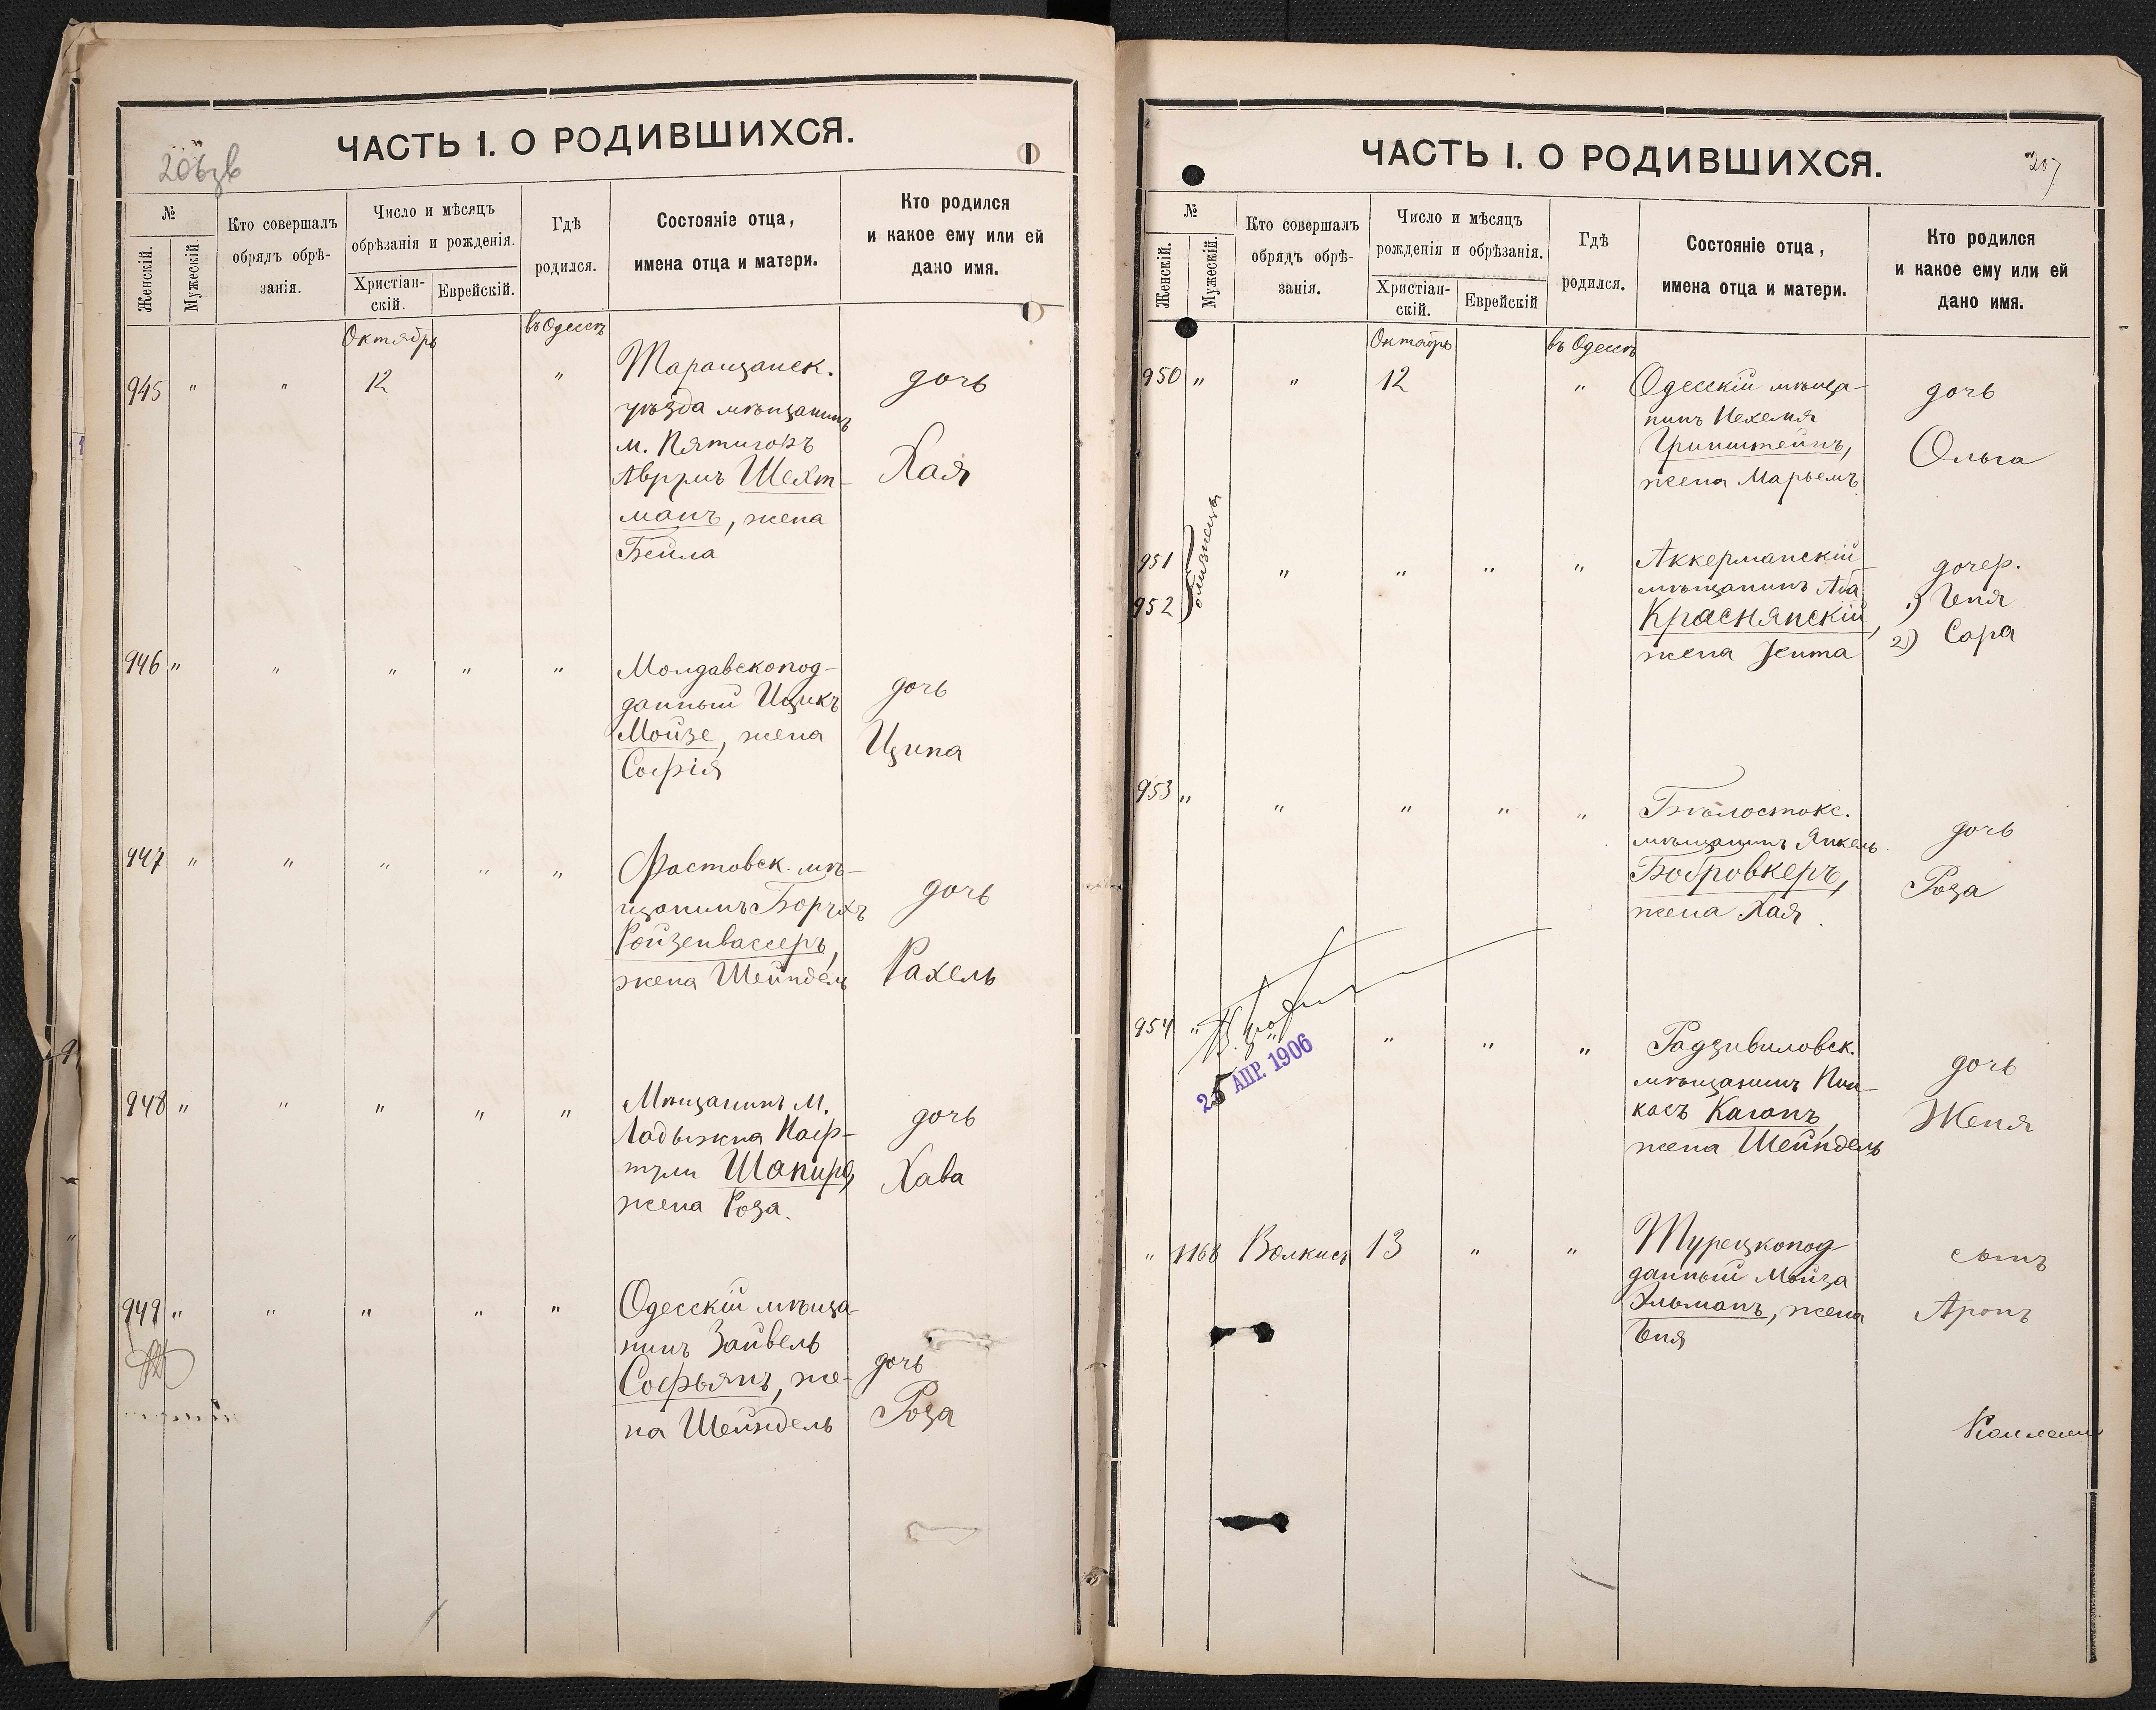 206зв
ЧАСТЬ I. О РОДИВШИХСЯ.
№
Женскій.
Мужескій.
Кто совершалъ
обрядъ обрѣ-
занія.
Число и мѣсяцъ
обрѣзанія и рожденія.
Христіан-
скій.
Еврейскій.
Гдѣ
родился.
Состояніе отца,
имена отца и матери.
Кто родился
и какое ему или ей
дано имя.
Октябрь
въ Одессѣ
945 " " 12 "
Таращанск.
уѣзда мѣщанинъ
м. Пятигоръ
Аврумъ Шехт-
манъ, жена
Бейла
дочь
Хая
946 " " " " "
Молдавскопод-
данный Ицикъ
Мойзе, жена
Софія
дочь
Ципа
947 " " " " "
Фастовск. мѣ-
щанинъ Борухъ
Ройзенвассеръ,
жена Шейндель
дочь
Рахель
948 " " " " "
Мѣщанинъ м.
Ладыжна Наф-
тули Шапиро,
жена Роза.
дочь
Хава
949 " " " " "
Одесскій мѣща-
нинъ Зайвель
Софьянъ, же-
на Шейндель
дочь
Роза
207
ЧАСТЬ I. О РОДИВШИХСЯ.
№
Женскій.
Мужескій.
Кто совершалъ
обрядъ обрѣ-
занія.
Число и мѣсяцъ
рожденія и обрѣзанія.
Христіан-
скій.
Еврейскій
Гдѣ
родился.
Состояніе отца,
имена отца и матери.
Кто родился
и какое ему или ей
дано имя.
Октябрь
въ Одессѣ
950 " " 12 "
Одесскій мѣща-
нинъ Нехемія
Гринштейнъ,
жена Марьемъ
дочь
Ольга
951
952
близнецы
" " " "
Аккерманскій
мѣщанинъ Аба
Краснянскій,
жена Jента
дочер.
1) Геня
2) Сара
953 " " " " "
Бѣлостокс.
мѣщанинъ Янкель
Бобровкеръ,
жена Хая.
дочь
Роза
954 " " " "
25 АПР. 1906
Радзивиловск.
мѣщанинъ Пин-
касъ Каганъ,
жена Шейндель
дочь
Женя
" 1168 Волкисъ 13 " "
Турецкопод
данный Мойза
Эльманъ, жена
Геня
сынъ
Аронъ